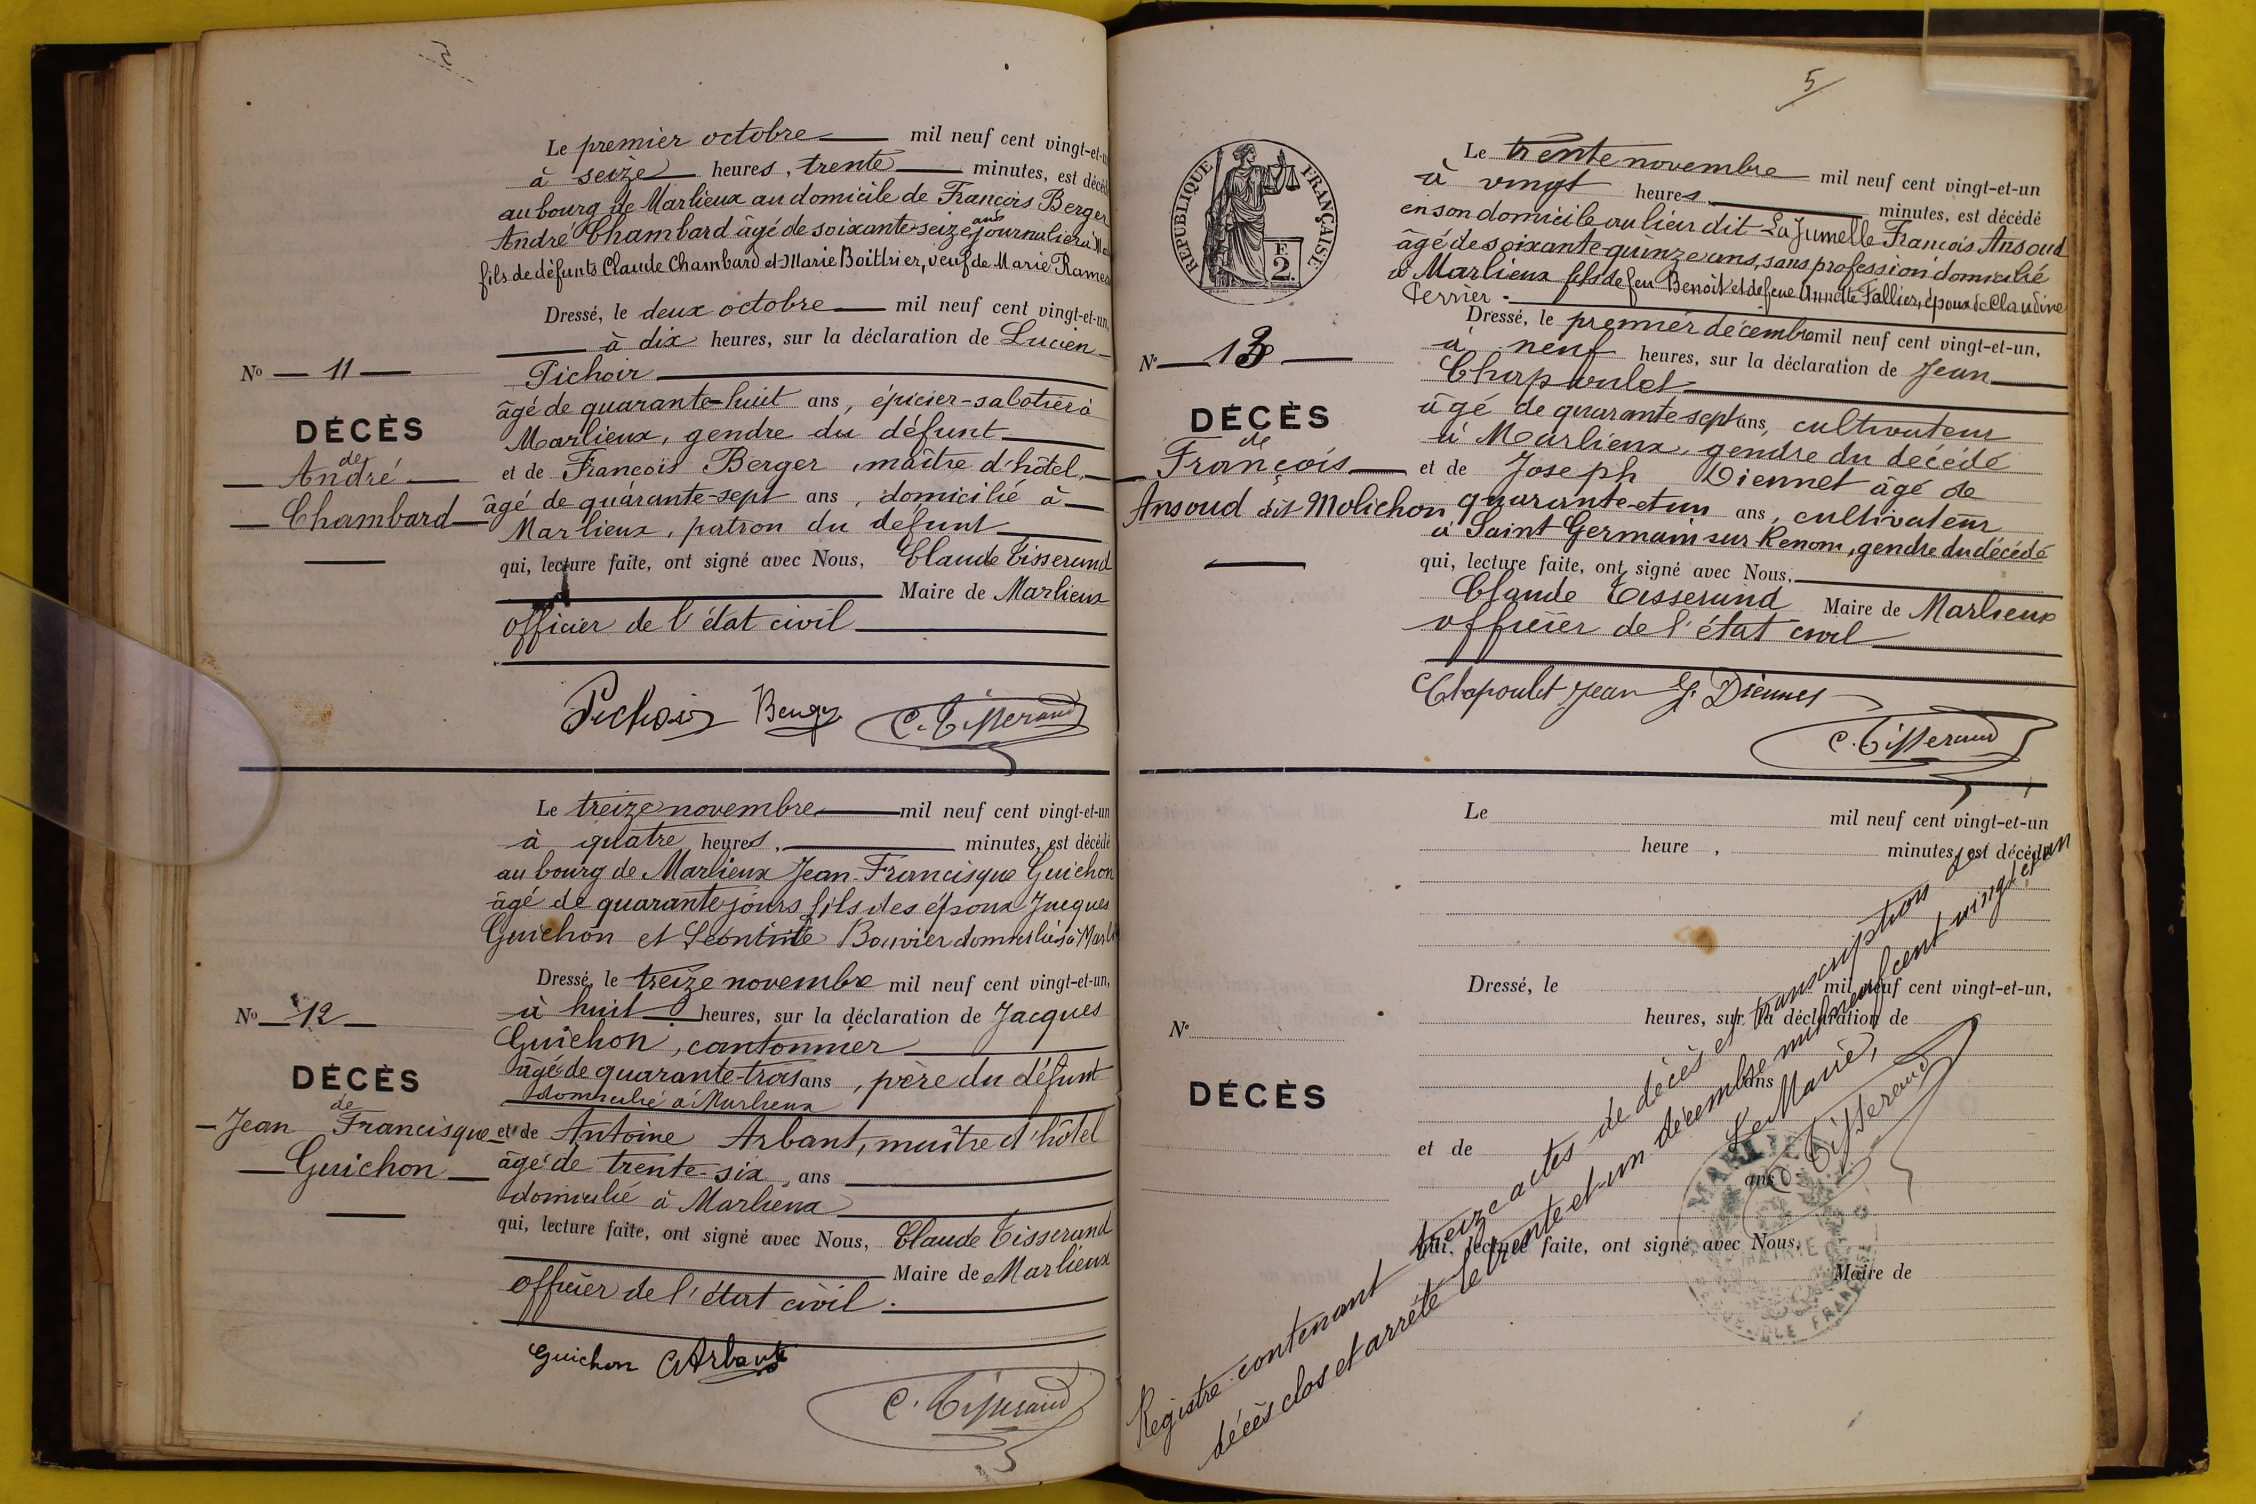 Le premier octobre mil neuf cent vingt-et-u
à seize heures, trente minutes, est décéd
au bourg de Marlieux au domicile de François Berger
André Chambard âgé de soixante seize ans journalier à Ma
fils de défunts Claude Chambard et Marie Boitthier, veuf de Marie Rame
Dressé, le deux octobre mil neuf cent vingt-et-un,
à dix heures, sur la déclaration de Lucien
Pichoir
âgé de quarante-huit ans, épicier-sabotier à
Marlieux, gendre du défunt
et de François Berger, maître d'hôtel,
âgé de quarante-sept ans, domicilié à
Marlieux, patron du défunt
qui, lecture faite, ont signé avec Nous, Claude Tisserand
Maire de Marlieux
officier de l'état civil
Pichoir Berger C. Tisserand
No 11
DÉCÈS
de
André
Chambard
Le treize novembre mil neuf cent vingt-et-un
à quatre heures, minutes, est décédé
au bourg de Marlieux Jean-Francisque Guichon
âgé de quarante jours fils des époux Jacques
Guichon et Léontine Bouvier domiciliés à Marli
Dressé, le treize novembre mil neuf cent vingt-et-un,
à huit heures, sur la déclaration de Jacques
Guichon, cantonnier
âgé de quarante-trois ans, père du défunt
domicilié à Marlieux
et de Antoine Arbant, maître d'hôtel
âgé de trente-six, ans
domicilié à Marlieux
qui, lecture faite, ont signé avec Nous, Claude Tisserand
Maire de Marlieux
officier de l'état civil.
Guichon A Arbant
C. Tisserand
No 12
DÉCÈS
de
Jean Francisque
Guichon
5
RÉPUBLIQUE FRANÇAISE
F
2.
Le trente novembre mil neuf cent vingt-et-un
à vingt heures, minutes, est décédé
en son domicile au lieu dit La Jumelle François Ansoud
âgé de soixante-quinze ans, sans profession domicilié
à Marlieux fils de feu Benoît et de feue Annette Fallier, époux de Claudine
Perrier.
Dressé, le premier décembre mil neuf cent vingt-et-un,
à neuf heures, sur la déclaration de Jean
Chapoulet
âgé de quarante sept ans, cultivateur
à Marlieux, gendre du décédé
et de Joseph Diennet âgé de
quarante-et-un ans, cultivateur
à Saint Germain sur Renom, gendre du décédé
qui, lecture faite, ont signé avec Nous,
Claude Tisserand Maire de Marlieux
officier de l'état civil
Chapoulet Jean J. Diennet
C. Tisserand
No 13
DÉCÈS
de
François
Ansoud dit Molichon
Le mil neuf cent vingt-et-un
heure, minutes, est décédé
Dressé, le mil neuf cent vingt-et-un,
heures, sur la déclaration de
ans
et de
ans
qui, lecture faite, ont signé avec Nous,
Maire de
No
DÉCÈS
Registre contenant treize actes de décès et transcription de
décès clos et arrêté le trente-et-un décembre mil neuf cent vingt et un
Le Maire,
C. Tisserand